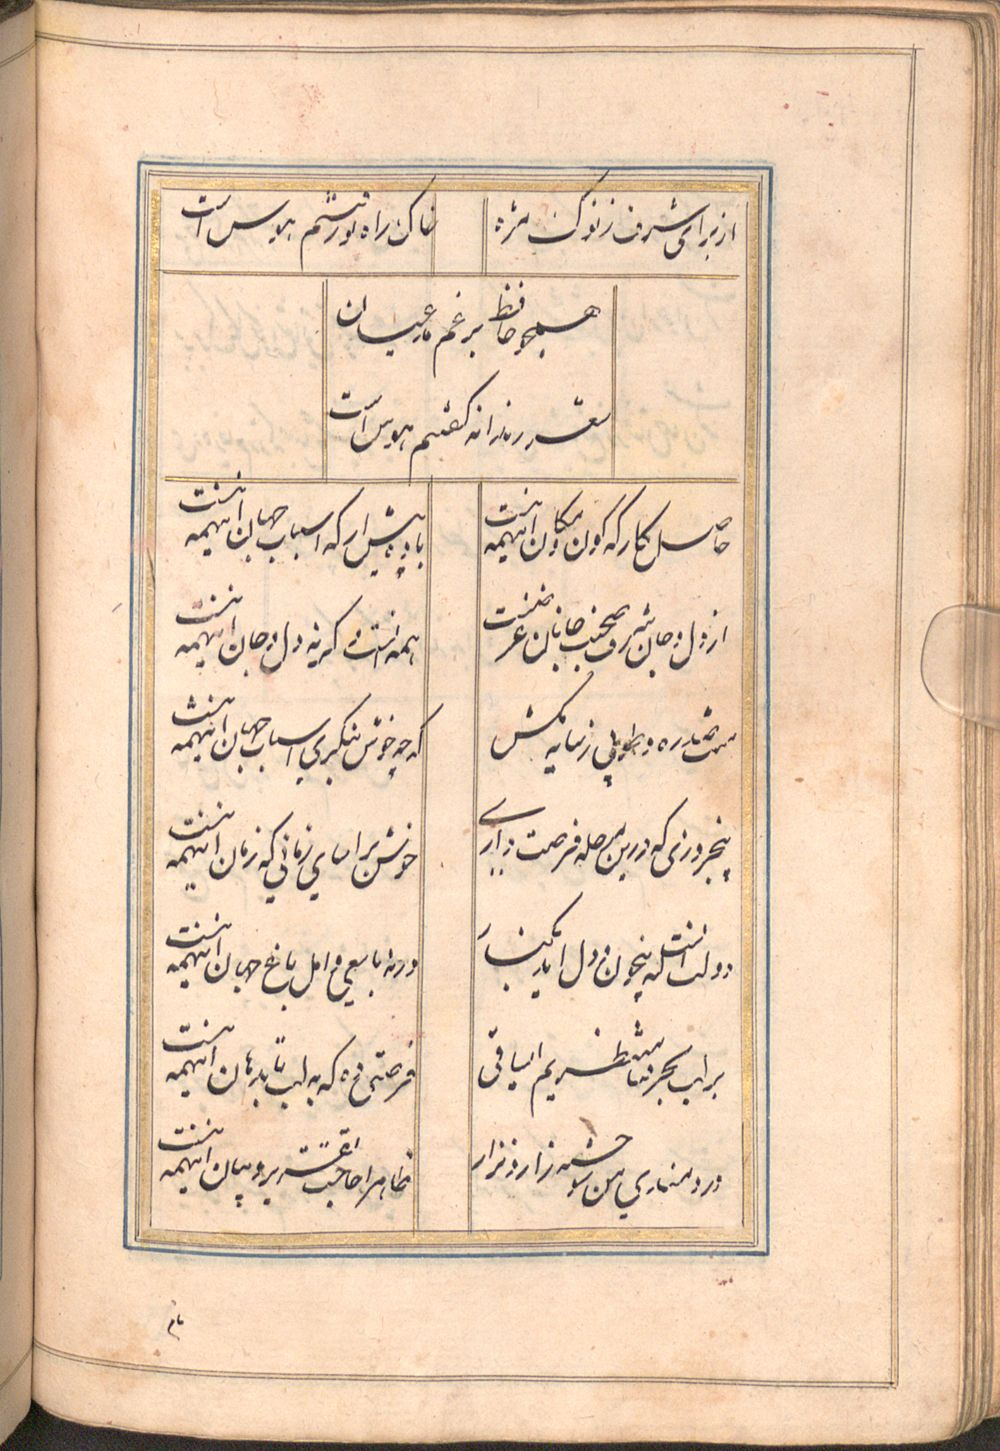 از برای شرف ز نوک مژه
خاک راه تو رفتنم هوس است
همچو حافظ برغم مدعیان
شعر رندانه گفتنم هوس است
حاصل کارکه کون و مکان اینهمه نیست
باده پیش ار که اسباب جهان اینهمه نیست
از دل و جان شرف صحبت جانان غرضست
همه انست وگرنه دل و جان اینهمه نیست
منت سدره و طوبی ز پی سایه مکش
که چو خوش بنگری اسباب جهان اینهمه نیست
پنجروزی که درین مرحله فرصت داری
خوش براسای زمانی که زمان اینهمه نیست
دولت انست که بیخون دل اید بکنار
ورنه با سعی و امل باغ جهان اینهمه نیست
بر لب بحر فنا منتظریم ای ساقی
فرصتی ده که ز لب تا بدهان اینهمه نیست
دردمندی من سوخته زار و نزار
ظاهرا حاجت تقریر و بیان اینهمه نیست